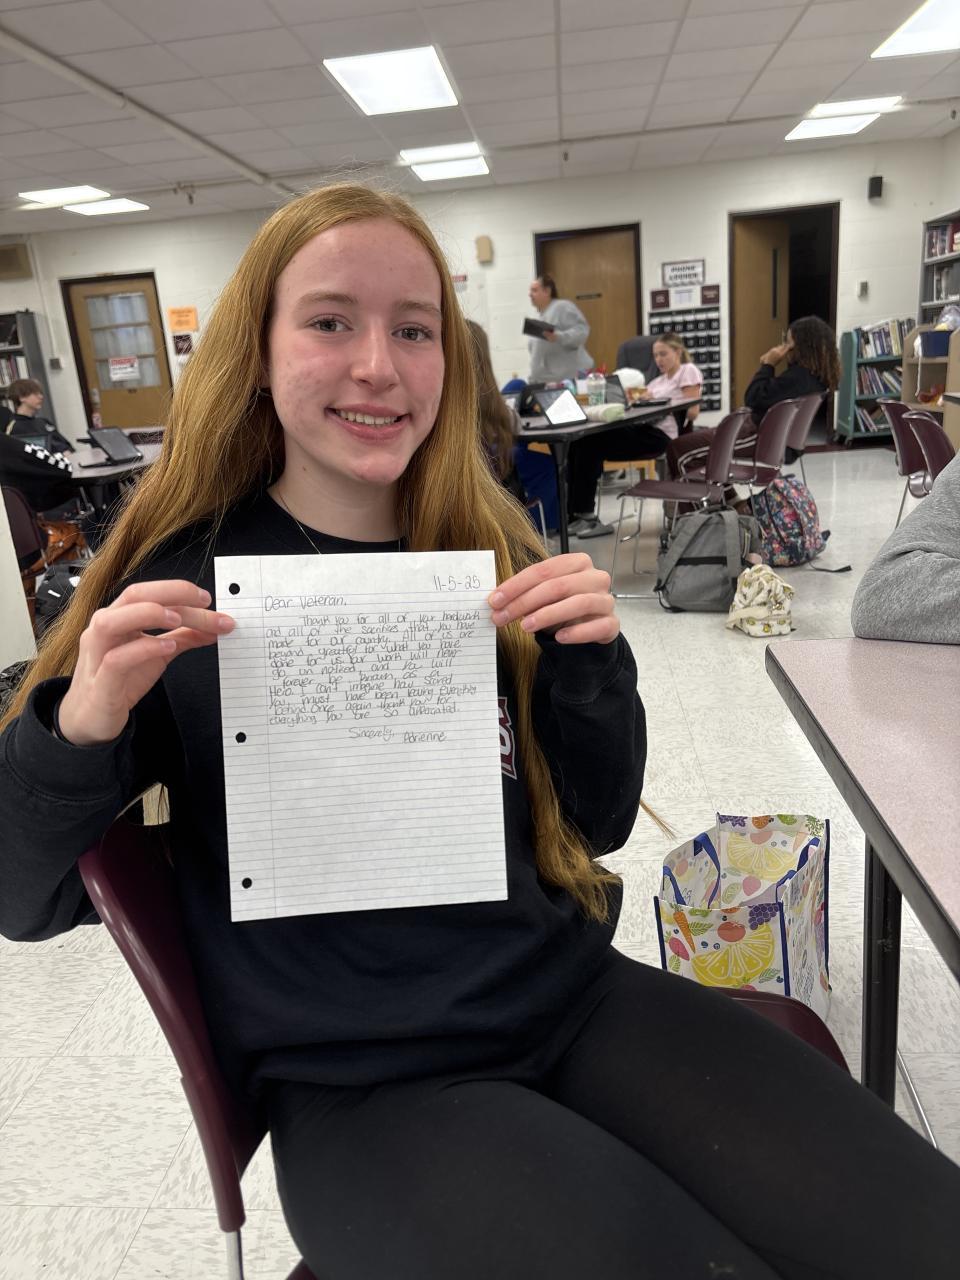 11-5-25
Dear Veteran,
Thank you for all of your hardwork
and all of the sacrifices that you have
made for our country. All of us are
beyond greatful for what you have
done for us. Your work will never
go un noticed, and you will
forever be known as a
Hero. I can't imagine how scared
you must have been leaving everything
behind. Once again thank you for
everything you are so appreciated.
Sincerely,
Adrienne
PHONE